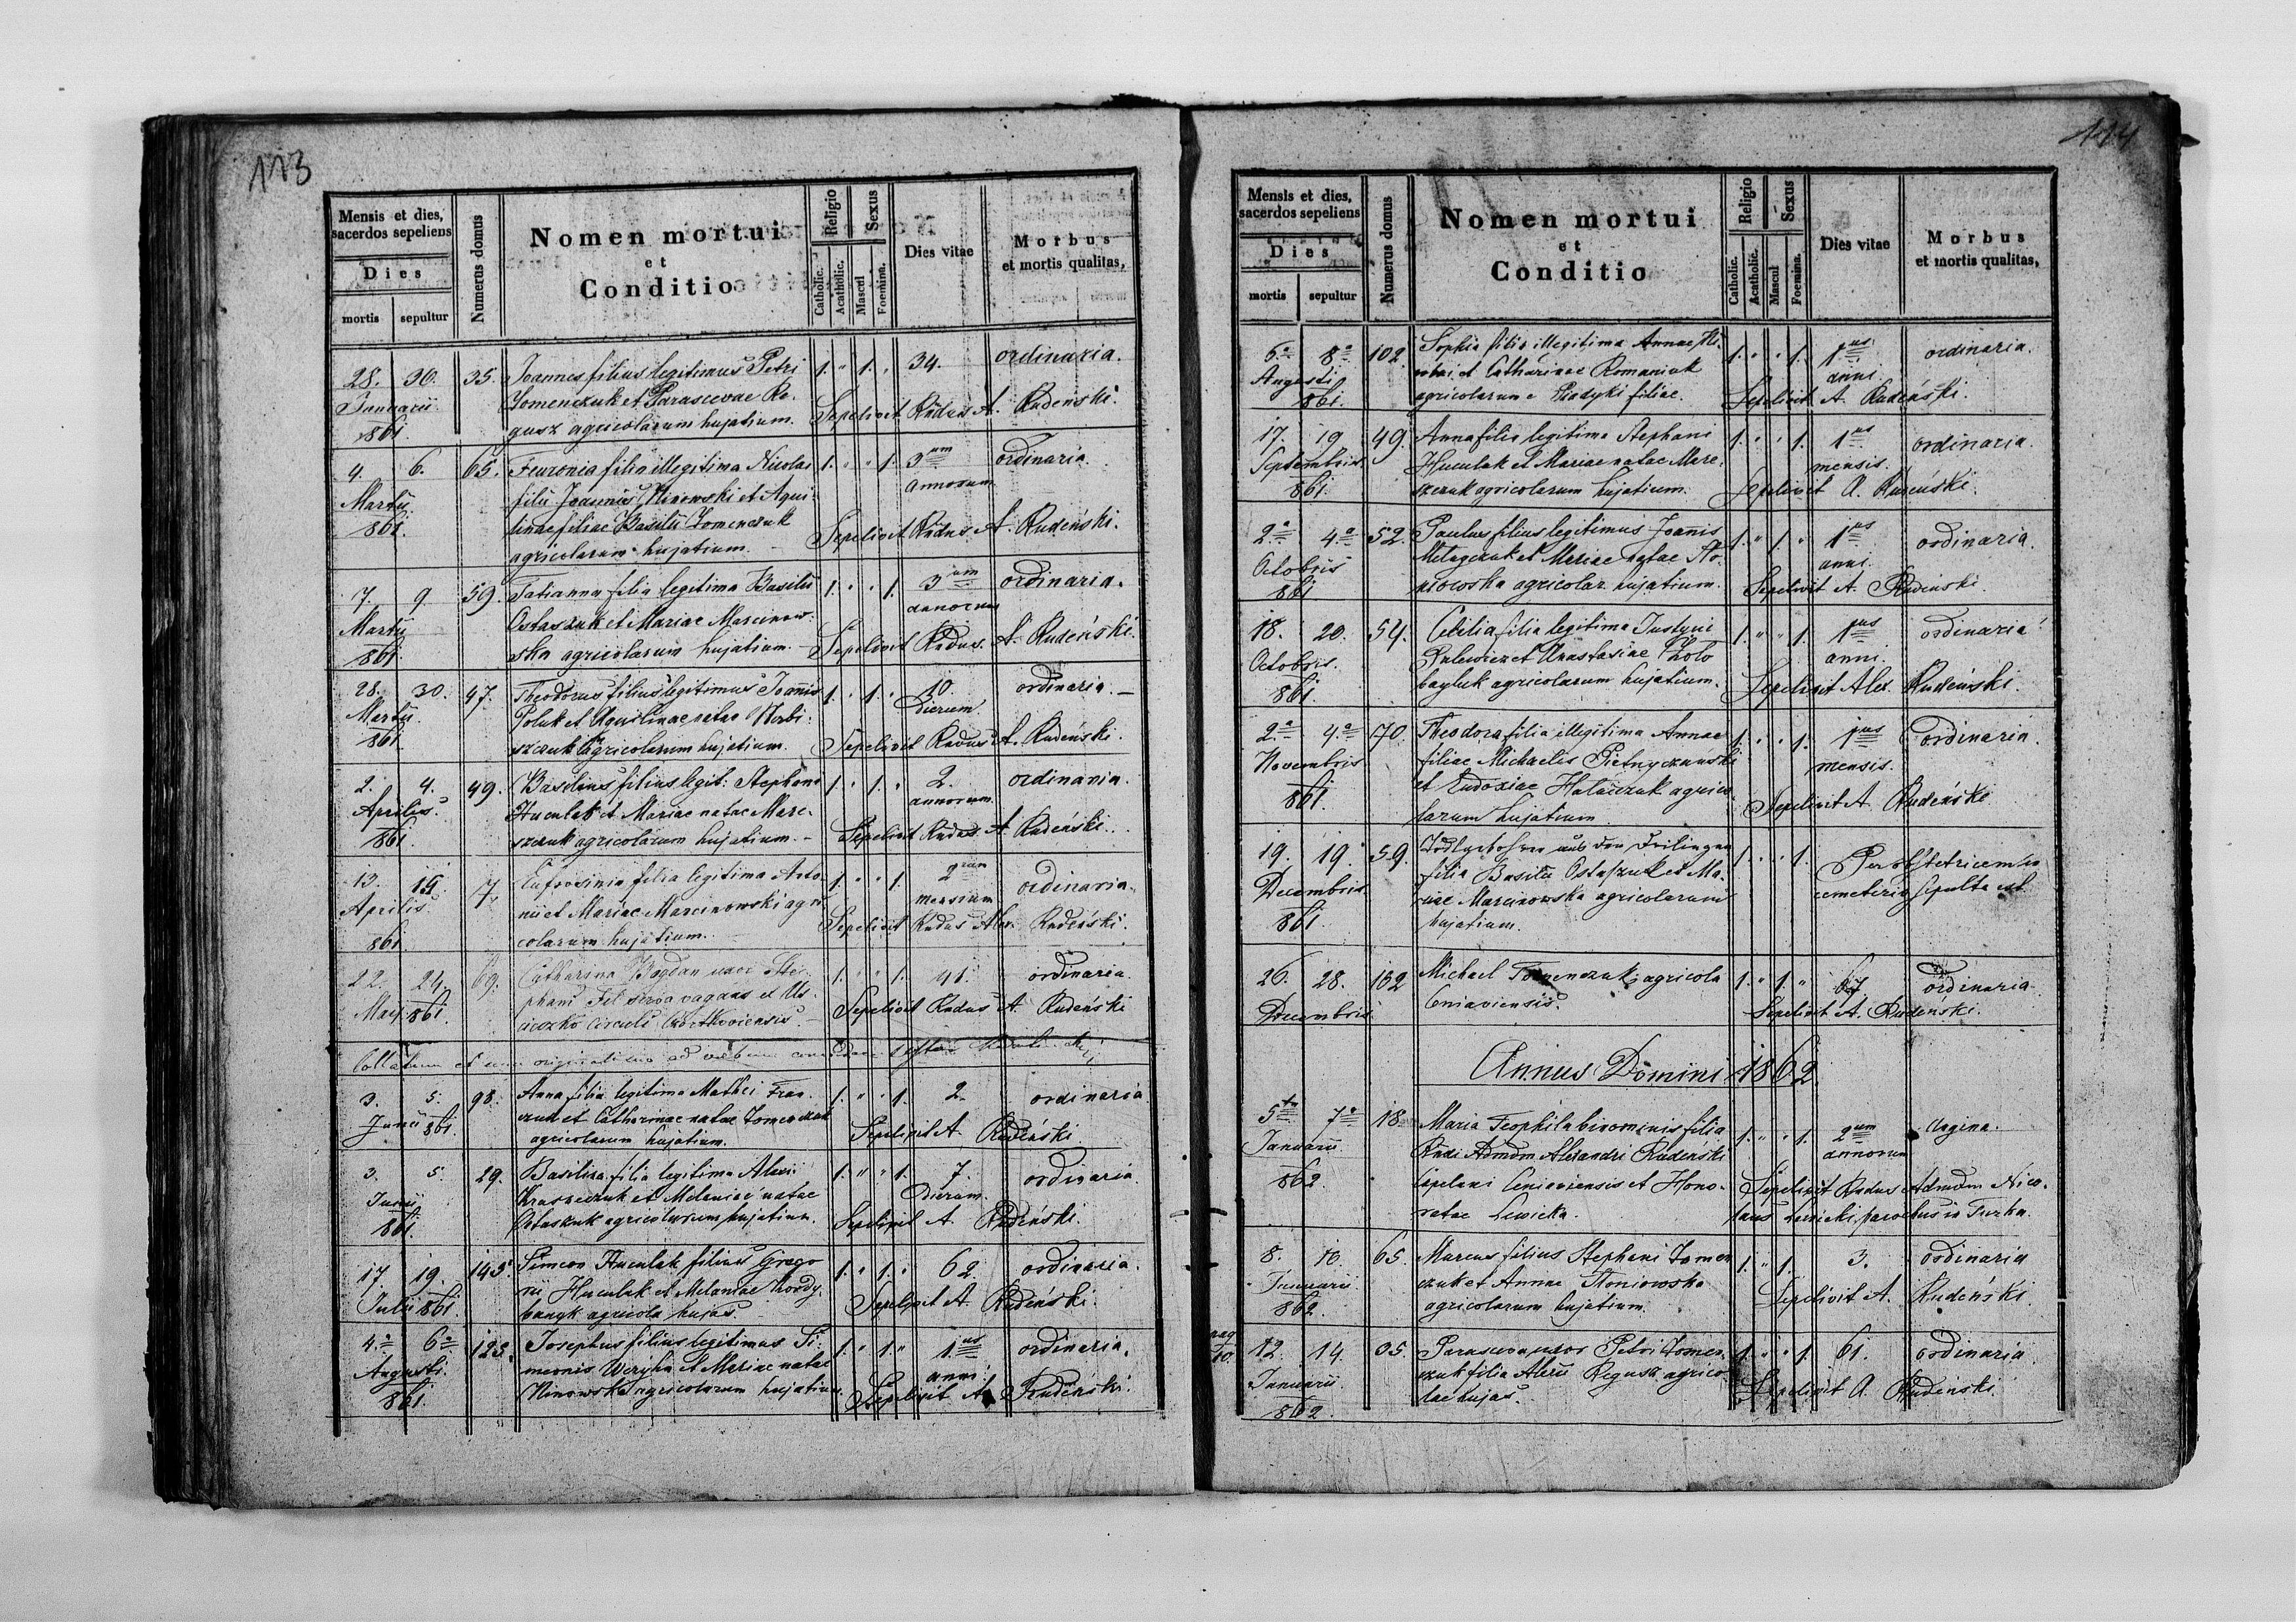 113
Mensis et dies,
sacerdos sepeliens
Dies
mortis sepultur
Numerus domus
Nomen mortui
et
Conditio
Religio
Catholic.
Acatholic.
Sexus
Mascul
Foemina.
Dies vitae
Morbus
et mortis qualitas,
28. 30. 35. Joannes filius legitimus Petri 1. " 1. " 34. ordinaria.
Januarii Tomenczuk et Parascevae Ro-
861. gusz agricolarum hujatium. Sepelivit Rndus A. Rudeński.
4. 6. 65. Fevronia filia illegitima Nicolai 1. " " 1. 3um ordinaria.
Martii filii Joannis Ninowski et Aqui- annorum
861. linae filiae Basilii Tomenczuk Sepelivit Rndus A. Rudeński.
agricolarum hujatium.
7. 9. 59. Tatianna filia legitima Basilii 1. " " 1. 3um ordinaria.
Martii Ostaszuk et Mariae Marcinow- annorum
861. ska agricolarum hujatium. Sepelivit Rndus. A. Rudeński.
28. 30. 47. Theodorus filius legitimus Joannis 1. " 1. " 10. ordinaria.
Martii. Poluk et Aquilinae natae dierum
861. agricolarum hujatium. Sepelivit Rndus A. Rudeński.
2. 4. 49. Basilius filius legit: Stephani 1. " 1. " 2. ordinaria.
Aprilis. Huculak et Mariae natae Marc- annorum
861. szczuk agricolarum hujatium. Sepelivit Rndus A. Rudeński.
13. 15. 7. Eufrosinia filia legitima Anto- 1. " " 1. 2rum ordinaria.
Aprilis nii et Mariae Marcinowski agri- mensium
861. colarum hujatium. Sepelivit Rndus Alex. Rudeński.
22. 24. 69. Catharina Bogdan uxor Ste- 1. " " 1. 41. ordinaria.
Maji 861. phani Fil vagans et Us- Sepelivit Rndus A. Rudeński
cieczko Circuli Czortkoviensis.
Collatum et cum originali suo ad verbum
3. 5. 98. Anna filia legitima Mathei Fran- 1. " " 1. 2. ordinaria.
Junii 861. czuk et Catharinae natae Tomenczuk Sepelivit A. Rudeński
agricolarum hujatium.
3. 5. 29. Basilisa filia legitima Alexii 1. " " 1. 7. ordinaria.
Junii et Melaniae natae Dierum.
861. Ostaszuk agricolarum hujatium. Sepelivit A. Rudeński.
17. 19. 145. Simeon Huculak filius Grego- 1. " 1. " 62. ordinaria.
Julii 861. rii Huculak et Melaniae Sepelivit A. Rudeński.
agricola hujas.
4a 6a 123. Josephus filius legitimus Si- 1. " 1. " 1us ordinaria.
Augusti. meonis Weryha et Mariae natae anni
861. Ninowska agricolarum hujatium. Sepelivit A. Rudeński.
114
Mensis et dies,
sacerdos sepeliens
Dies
mortis sepultur
Numerus domus
Nomen mortui
et
Conditio
Religio
Catholic.
Acatholic.
Sexus
Mascul
Foemina.
Dies vitae
Morbus
et mortis qualitas,
6a 8a 102 Sophia filia illegitima Annae Ni- 1. " " 1. 1us ordinaria.
Augusti colai et Catharinae Romaniuk anni
861. agricolarum e Piadyki filiae. Sepelivit A. Rudeński.
17. 19 49. Anna filia legitima Stephani 1. " " 1. 1us ordinaria.
Septembris Huculak et Mariae natae Marc- mensis.
861. szczuk agricolarum hujatium. Sepelivit A. Rudeński.
2a 4a 52. Paulus filius legitimus Joannis 1. " 1. " 1us ordinaria.
Octobris et Mariae natae Sto- anni.
861. niowska agricolar. hujatium. Sepelivit A. Rudeński.
18. 20. 54. Cecilia filia legitima Justyni 1. " " 1. 1us ordinaria
Octobris. et Anastasiae Tholo- anni.
861. bayluk agricolarum hujatium. Sepelivit Alex. Rudeński.
2a 4a 70. Theodora filia illegitima Annae 1. " " 1. 1us ordinaria.
Novembris filiae Michaelis Pietnyczański mensis.
861. et Eudoxiae Hataczuk agrico- Sepelivit A. Rudeński
larum hujatium.
19. 19. 59. Todtgebohren aus den Drilingen 1. " " 1. Per obstetricem in
Decembris filia Basilii Ostaszuk et Ma- cemeterio sepulta est
861. riae Marcinowska agricolarum
hujatium.
26. 28. 102 Michael Tomenczuk agricola 1. " 1. " 67 ordinaria.
Decembris Ceniaviensis. Sepelivit A. Rudeński.
Annus Domini 1862
5ta 7a 18 Maria Teophila binominis filia 1. " " 1. 2um Angina.
Januarii. Rndi Admdm Alexandri Rudenski annorum
862. Capelani Ceniaviensis et Hono- Sepelivit Rndus Admdm Nico-
ratae Lewicka. laus Lewicki parochus in Turka.
8. 10. 65. Marcus filius Stephani Tomen- 1. " 1. 3. ordinaria
Januarii czuk et Annae Stoniowska Sepelivit A. Rudeński
862. agricolarum hujatium.
12. 14. 35. Parasceva uxor Petri Tomen- 1. " " 1. 61. ordinaria
Januarii czuk filia Alexii Rogusz agrico- Sepelivit A. Rudeński.
862. lae hujas.